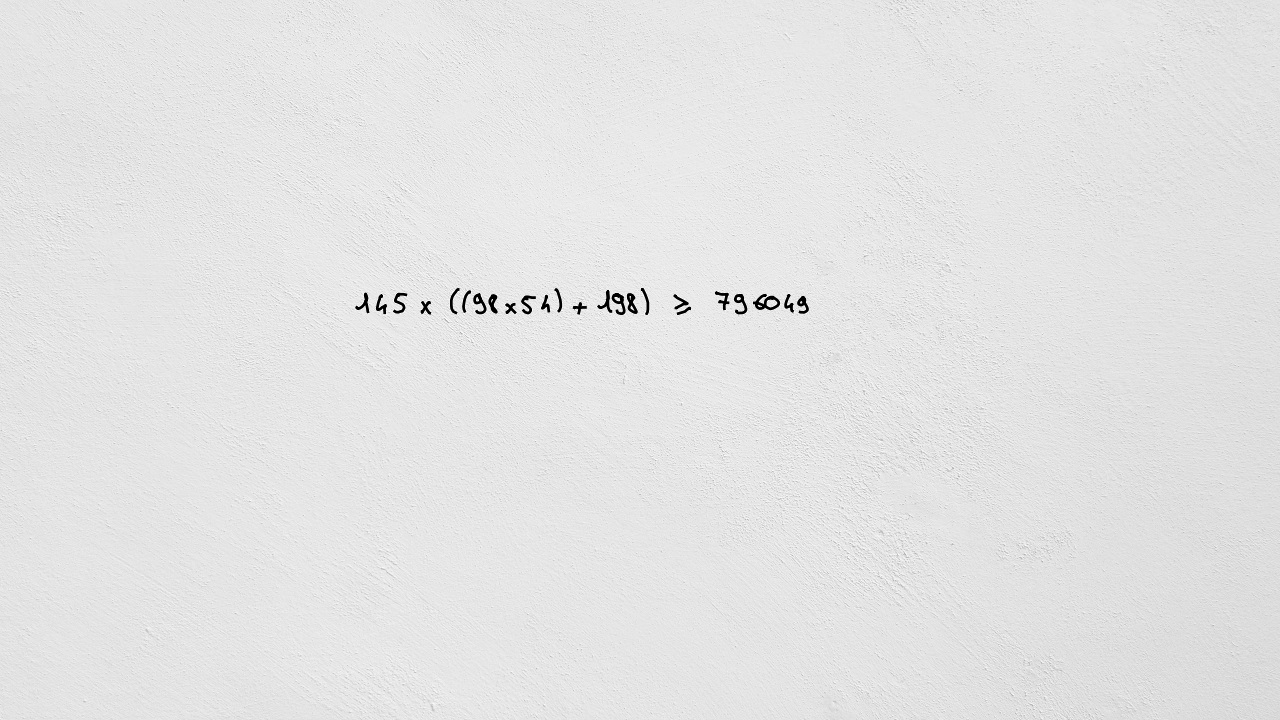 145 x ((98x54) + 198) ≥ 796049